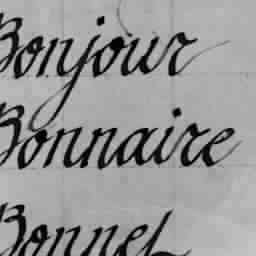 Bonjour
Bonnaire
Bonnet